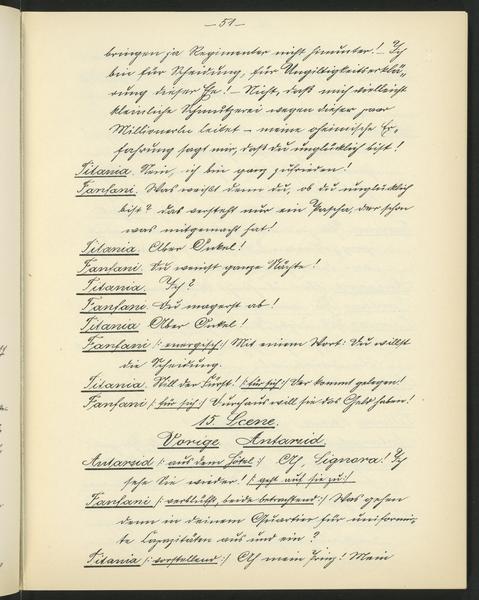 — 51 —
bringen ja Regimenter nicht hinunter! — Ich
bin für Scheidung, für Ungiltigkeitserklä-
rung dieser Ehe! — Nicht, daß mich vielleicht
kleinliche Schmutzerei wegen dieser paar
Millionerln leitet — meine Er-
fahrung sagt mir, daß du unglücklich bist!
Titania. Nein, ich bin ganz zufrieden!
Fanfani. Was weißt denn du, ob du unglücklich
bist? Das versteht nur ein Pascha, der schon
was mitgemacht hat!
Titania. Aber Onkel!
Fanfani. Du weinst ganze Nächte!
Titania. Ich?
Fanfani. Du magerst ab!
Titania. Aber Onkel!
Fanfani (: energisch :) Mit einem Wort: Du willst
die Scheidung.
Titania. Will der Fürst! (: für sich :) Der kommt gelegen!
Fanfani (: für sich :) Durchaus will sie das Geld haben!
15. Scene.
Vorige Antarsid.
Antarsid (: aus dem Hotel :) Ah, Signora! Ich
sehe Sie wieder! (: geht auf sie zu :)
Fanfani (: verblüfft, beide betrachtend :) Was gehen
denn in deinem Quartier für uniformir-
te Capazitäten aus und ein?
Titania (: vorstellend :) Ah mein Prinz! Mein